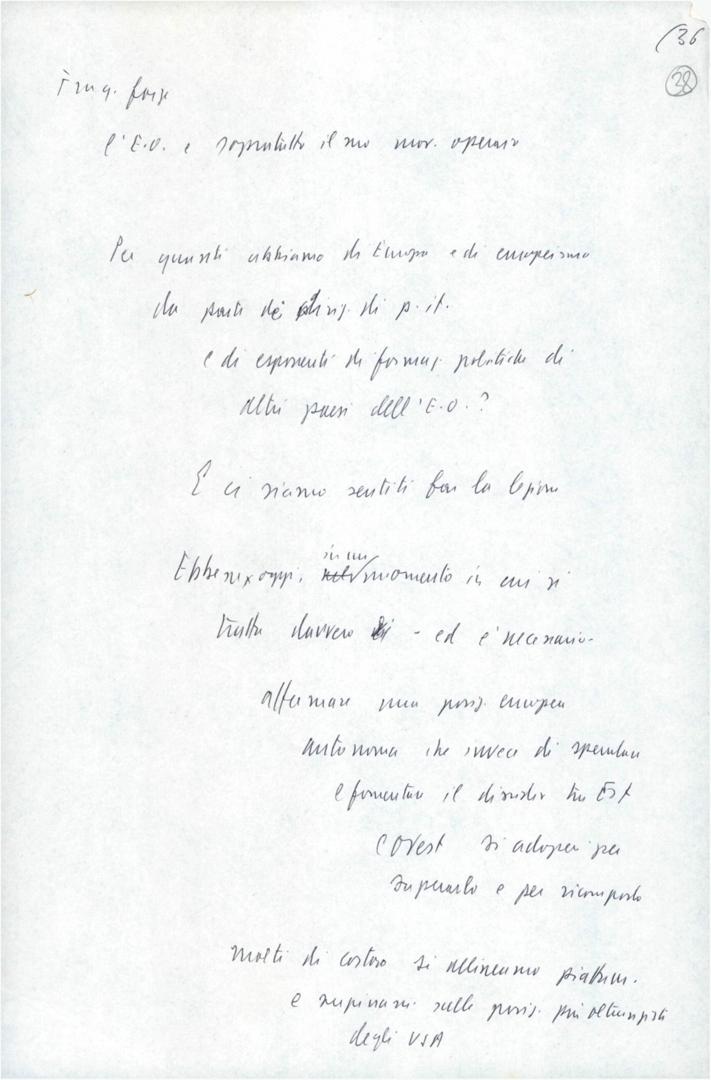 (36
38
forze
l'E.O. e sopratutto il suo mov. operaio
Per quanti abbiamo di Europa e di europeismo
da parte di p. it.
e di esponenti di formaz. politiche di
altri paesi dell'E.O.?
E ci siamo sentiti fare la lezione
Ebbene, oggi, in un momento in cui si
tratta davvero - ed è necessario -
affermare una posiz. europea
autonoma che invece di speculare
e fomentare il dissidio tra Est
e Ovest si adoperi per
superarlo e per ricomporlo
molti di costoro si allineano piattam.
e supinam. sulle posiz. più oltranziste
degli USA